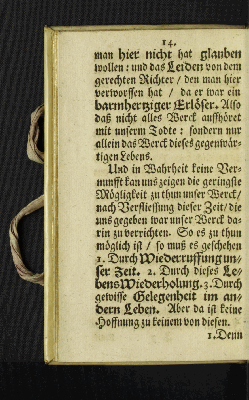 14.
man hier nicht hat glauben
wollen: und das Leiden von dem
gerechten Richter / den man hier
verworffen hat / da er war ein
barmhertziger Erlöser. Also
daß nicht alles Werck auffhöret
mit unserm Todte: sondern nur
allein das Werck dieses gegenwär-
tigen Lebens.
Und in Wahrheit keine Ver-
nunfft kan uns zeigen die geringste
Mögligkeit zu thun unser Werck /
nach Verfliessung dieser Zeit / die
uns gegeben war unser Werck da-
rin zu verrichten. So es zu thun
möglich ist / so muß es geschehen
1. Durch Wiederruffung un-
ser Zeit. 2. Durch dieses Le-
bens Wiederholung. 3. Durch
gewisse Gelegenheit im an-
dern Leben. Aber da ist keine
Hoffnung zu keinem von diesen.
1. Denn